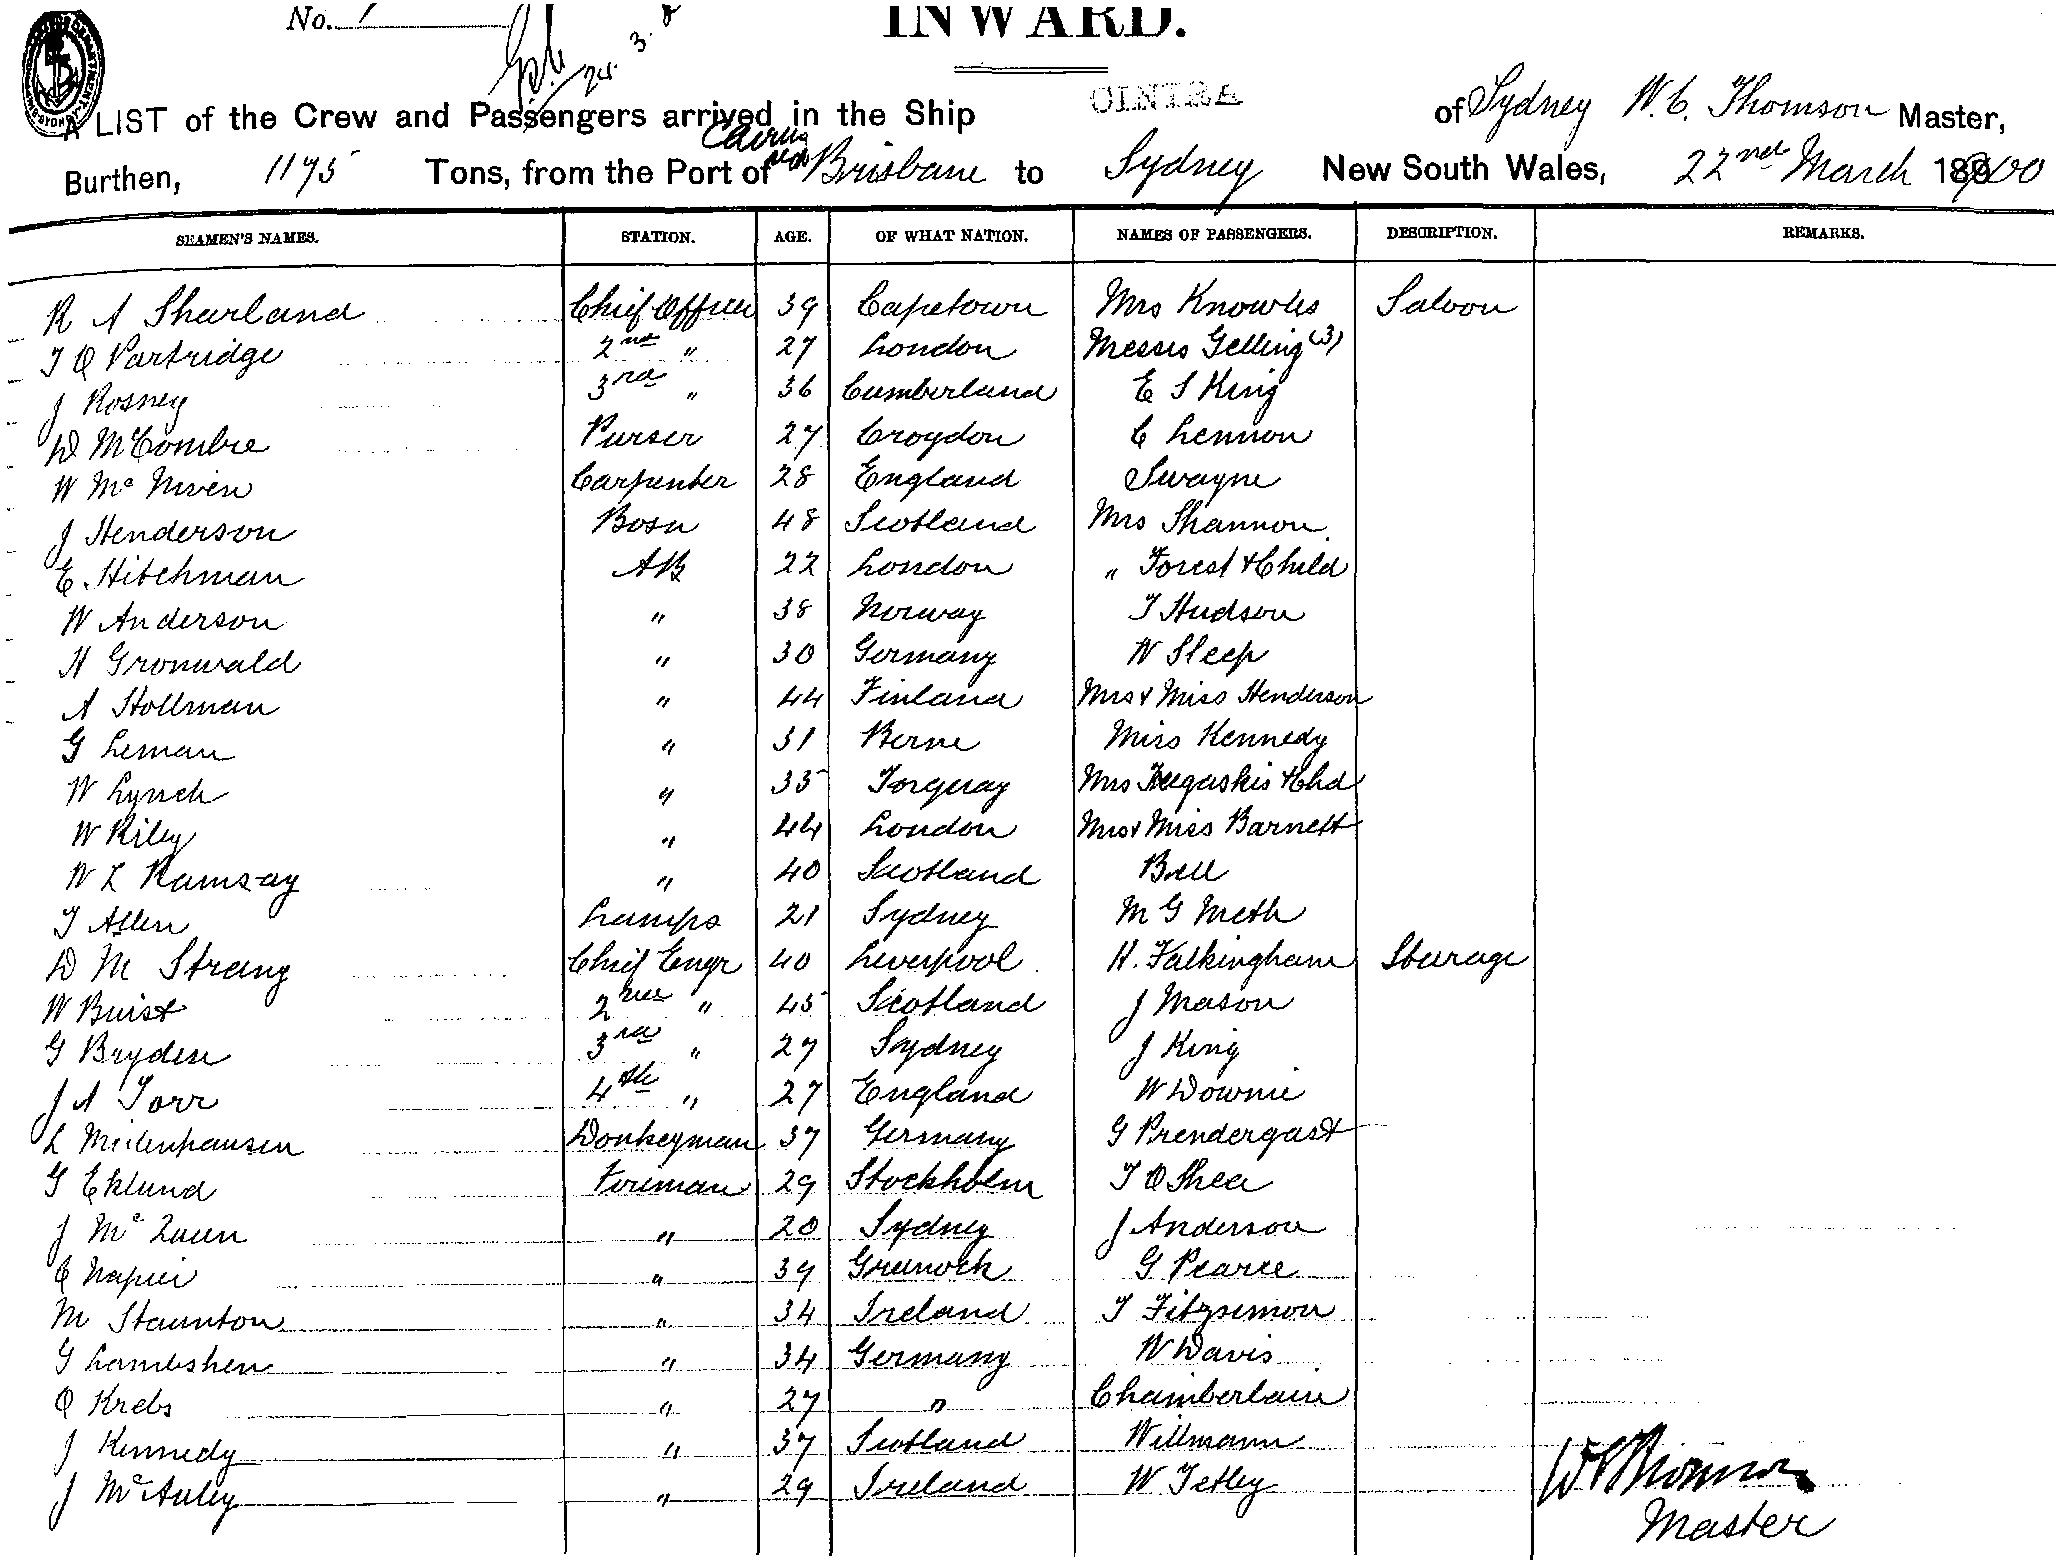 No. 1
24. 3.
INWARD.
A LIST of the Crew and Passengers arrived in the Ship CINTRA of Sydney W. C. Thomson Master,
Burthen, 1175 Tons, from the Port of Cairns via Brisbane to Sydney New South Wales, 22nd March 1900
SEAMEN'S NAMES. STATION. AGE. OF WHAT NATION. NAMES OF PASSENGERS. DESCRIPTION. REMARKS.
R A Sharland Chief Officer 39 Capetown Mrs Knowles Saloon
T O Partridge 2nd " 27 London Messrs Gelling (3)
J Rosney 3rd " 36 Cumberland E S King
D McCombie Purser 27 Croydon C Lennon
W Mc Niven Carpenter 28 England Swayne
J Henderson Bosn 48 Scotland Mrs Shannon
E Hitchman AB 22 London " Forest & Child
W Anderson " 38 Norway T Hudson
H Gronwald " 30 Germany W Sleep
A Hollman " 44 Finland Mrs & Miss Henderson
G Leman " 31 Berne Miss Kennedy
W Lynch " 35 Torquay Mrs Tregaskis & Chd
W Riley " 44 London Mrs & Miss Barnett
W L Ramsay " 40 Scotland Bell
T Allen Lamps 21 Sydney M G Meth
D M Strang Chief Engr 40 Liverpool H. Falkingham Steerage
W Buist 2nd " 45 Scotland J Mason
G Bryden 3rd " 27 Sydney J King
J A Torr 4th " 27 England W Downie
L Meilenhausen Donkeyman 37 Germany G Prendergast
G Eklund Fireman 29 Stockholm T O Shea
J Mc Queen " 20 Sydney J Anderson
C Napier " 39 Greenock G Pearce
M Staunton " 34 Ireland T Fitzsimon
G Lambshen " 34 Germany W Davis
O Krebs " 27 " Chamberlain
J Kennedy " 37 Scotland Willmann
J McAuley " 29 Ireland W Tetley
W C Thomson
Master